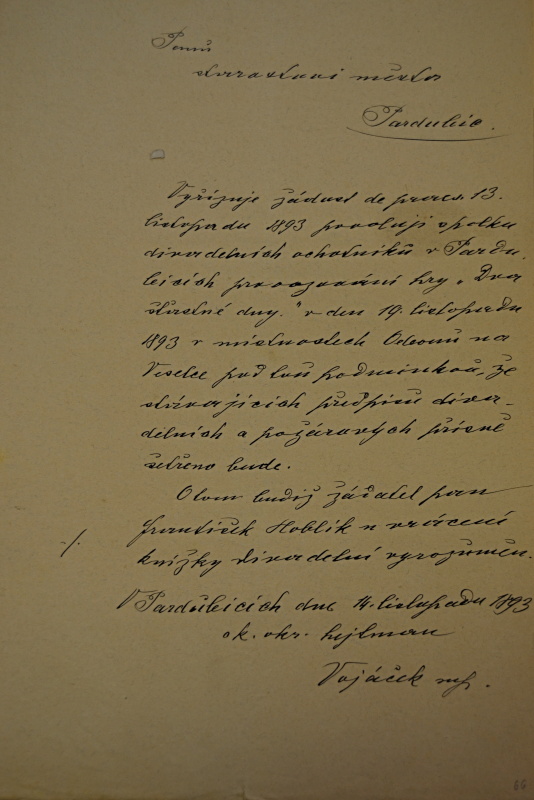 Panu
starostovi města
Pardubic.
Vyřizuje žádost de praes. 13.
listopadu 1893 povoluji spolku
divadelních ochotníků v Pardu-
bicích provozování hry „Dva
šťastné dny." v den 19. listopadu
1893 v místnostech Odeonu na
Veselce pod tou podmínkou, že
stávajících předpisů diva-
delních a požárových přísně
šetřeno bude.
O tom budiž žadatel pan
František Hoblík u vrácení
knížky divadelní vyrozuměn.
-/.
V Pardubicích dne 14. listopadu 1893
ck. okr. hejtman
Vojáček mp.
66